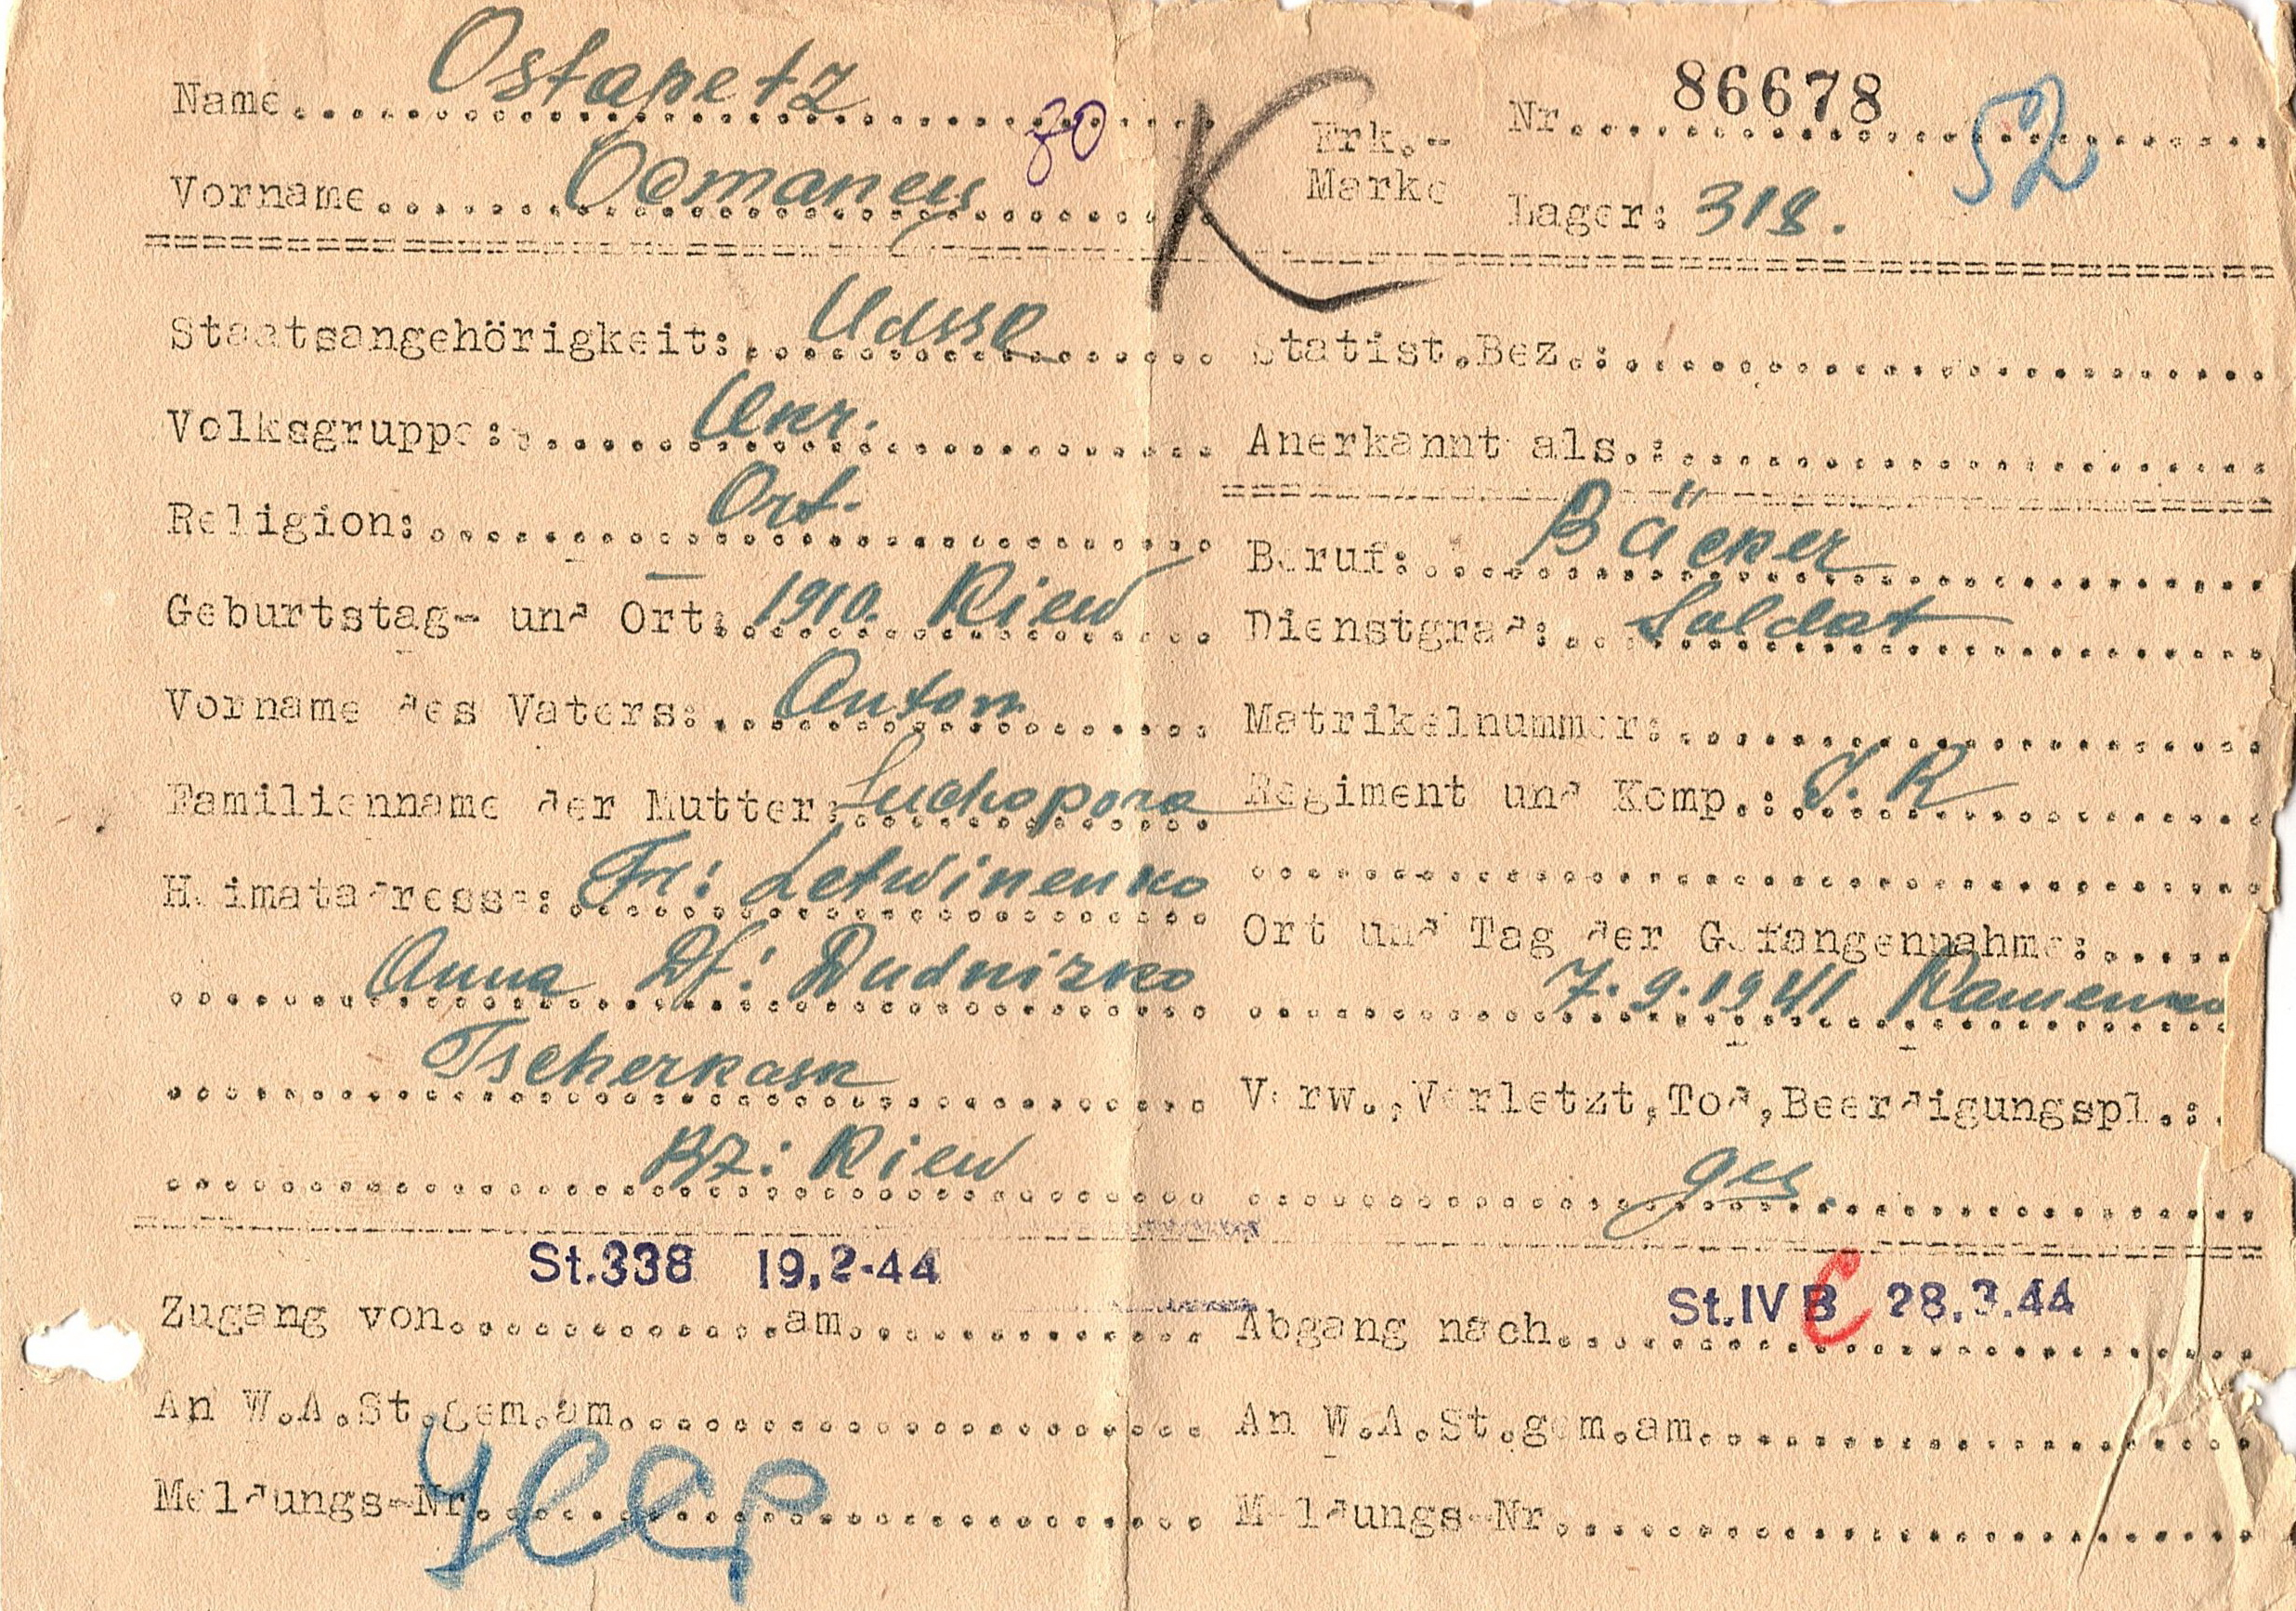 Name. Ostapetz
80
Vorname.
K
Erk.-Marke
Nr. 86678
52
Lager: 318.
Staatsangehörigkeit: UdSSR
Volksgruppe: Ukr.
Religion: Ort.
Geburtstag- und Ort: 1910. Kiew
Vorname des Vaters: Anton
Familienname der Mutter: Suchopora
Heimatadresse: Fr: Letwinenko
Anna Df: Dudnizko
Tscherkask
Bz: Kiew
Statist.Bez.:
Anerkannt als.:
Beruf: Bäcker
Dienstgrad: Soldat
Matrikelnummer:
Regiment und Komp.: J. R
Ort und Tag der Gefangennahme:
7.9.1941 Kamenko
Verw.,Verletzt,Tod,Beerdigungspl.:
ges.
St.338 19.2.44
Zugang von am
An W.A.St.gem.am.
Meldungs-Nr.
St.IV B C 28.3.44
Abgang nach
An W.A.St.gem.am.
Meldungs-Nr.